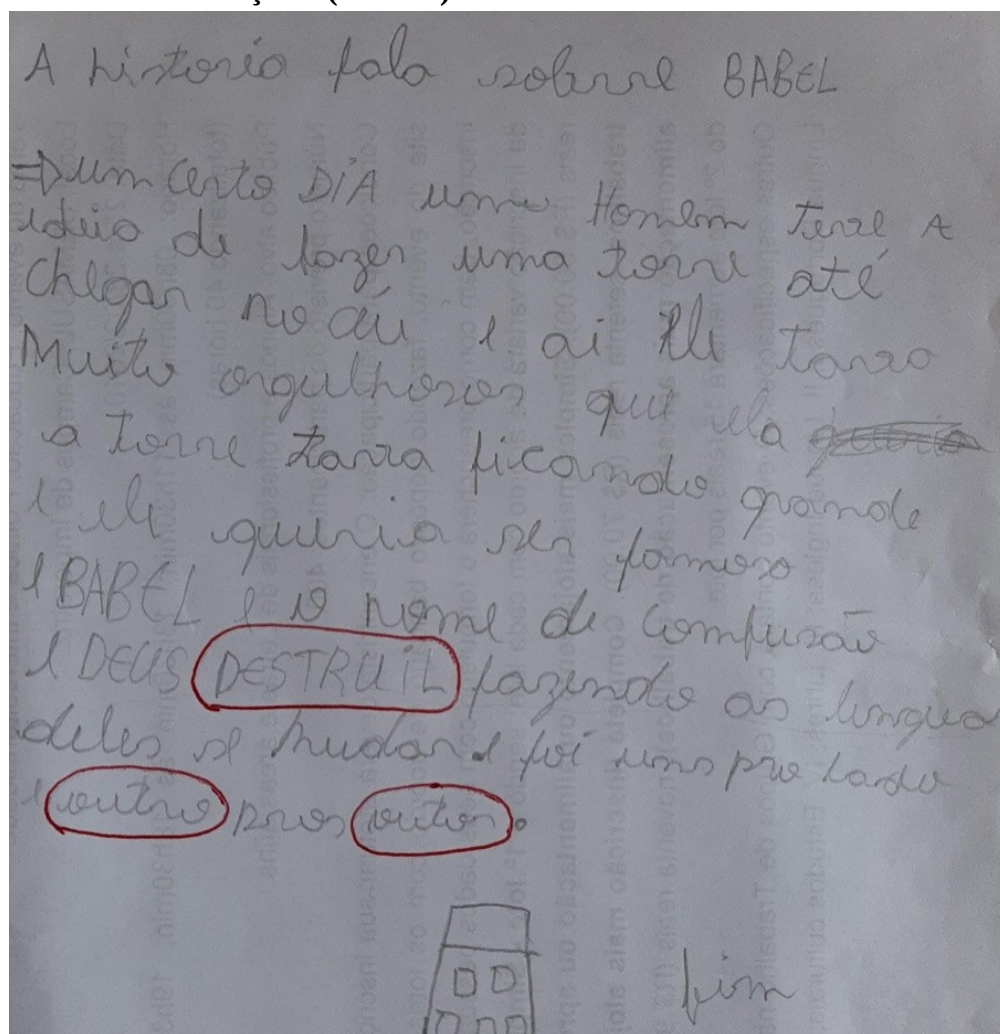 A historia fala sobre BABEL
⇒ um certo DiA uma Homem teve A
ideia de fazer uma torre até
Chegar no céu e ai ele tavao
Muito orgulhosos que ela
a torre tava ficando grande
e ele queria ser famoso
e BABEL e o nome de comfusão
e DEUS DESTRUiL fazendo as lingua
deles se mudar e foi uns pro lardo
e outro pros outos.
fim